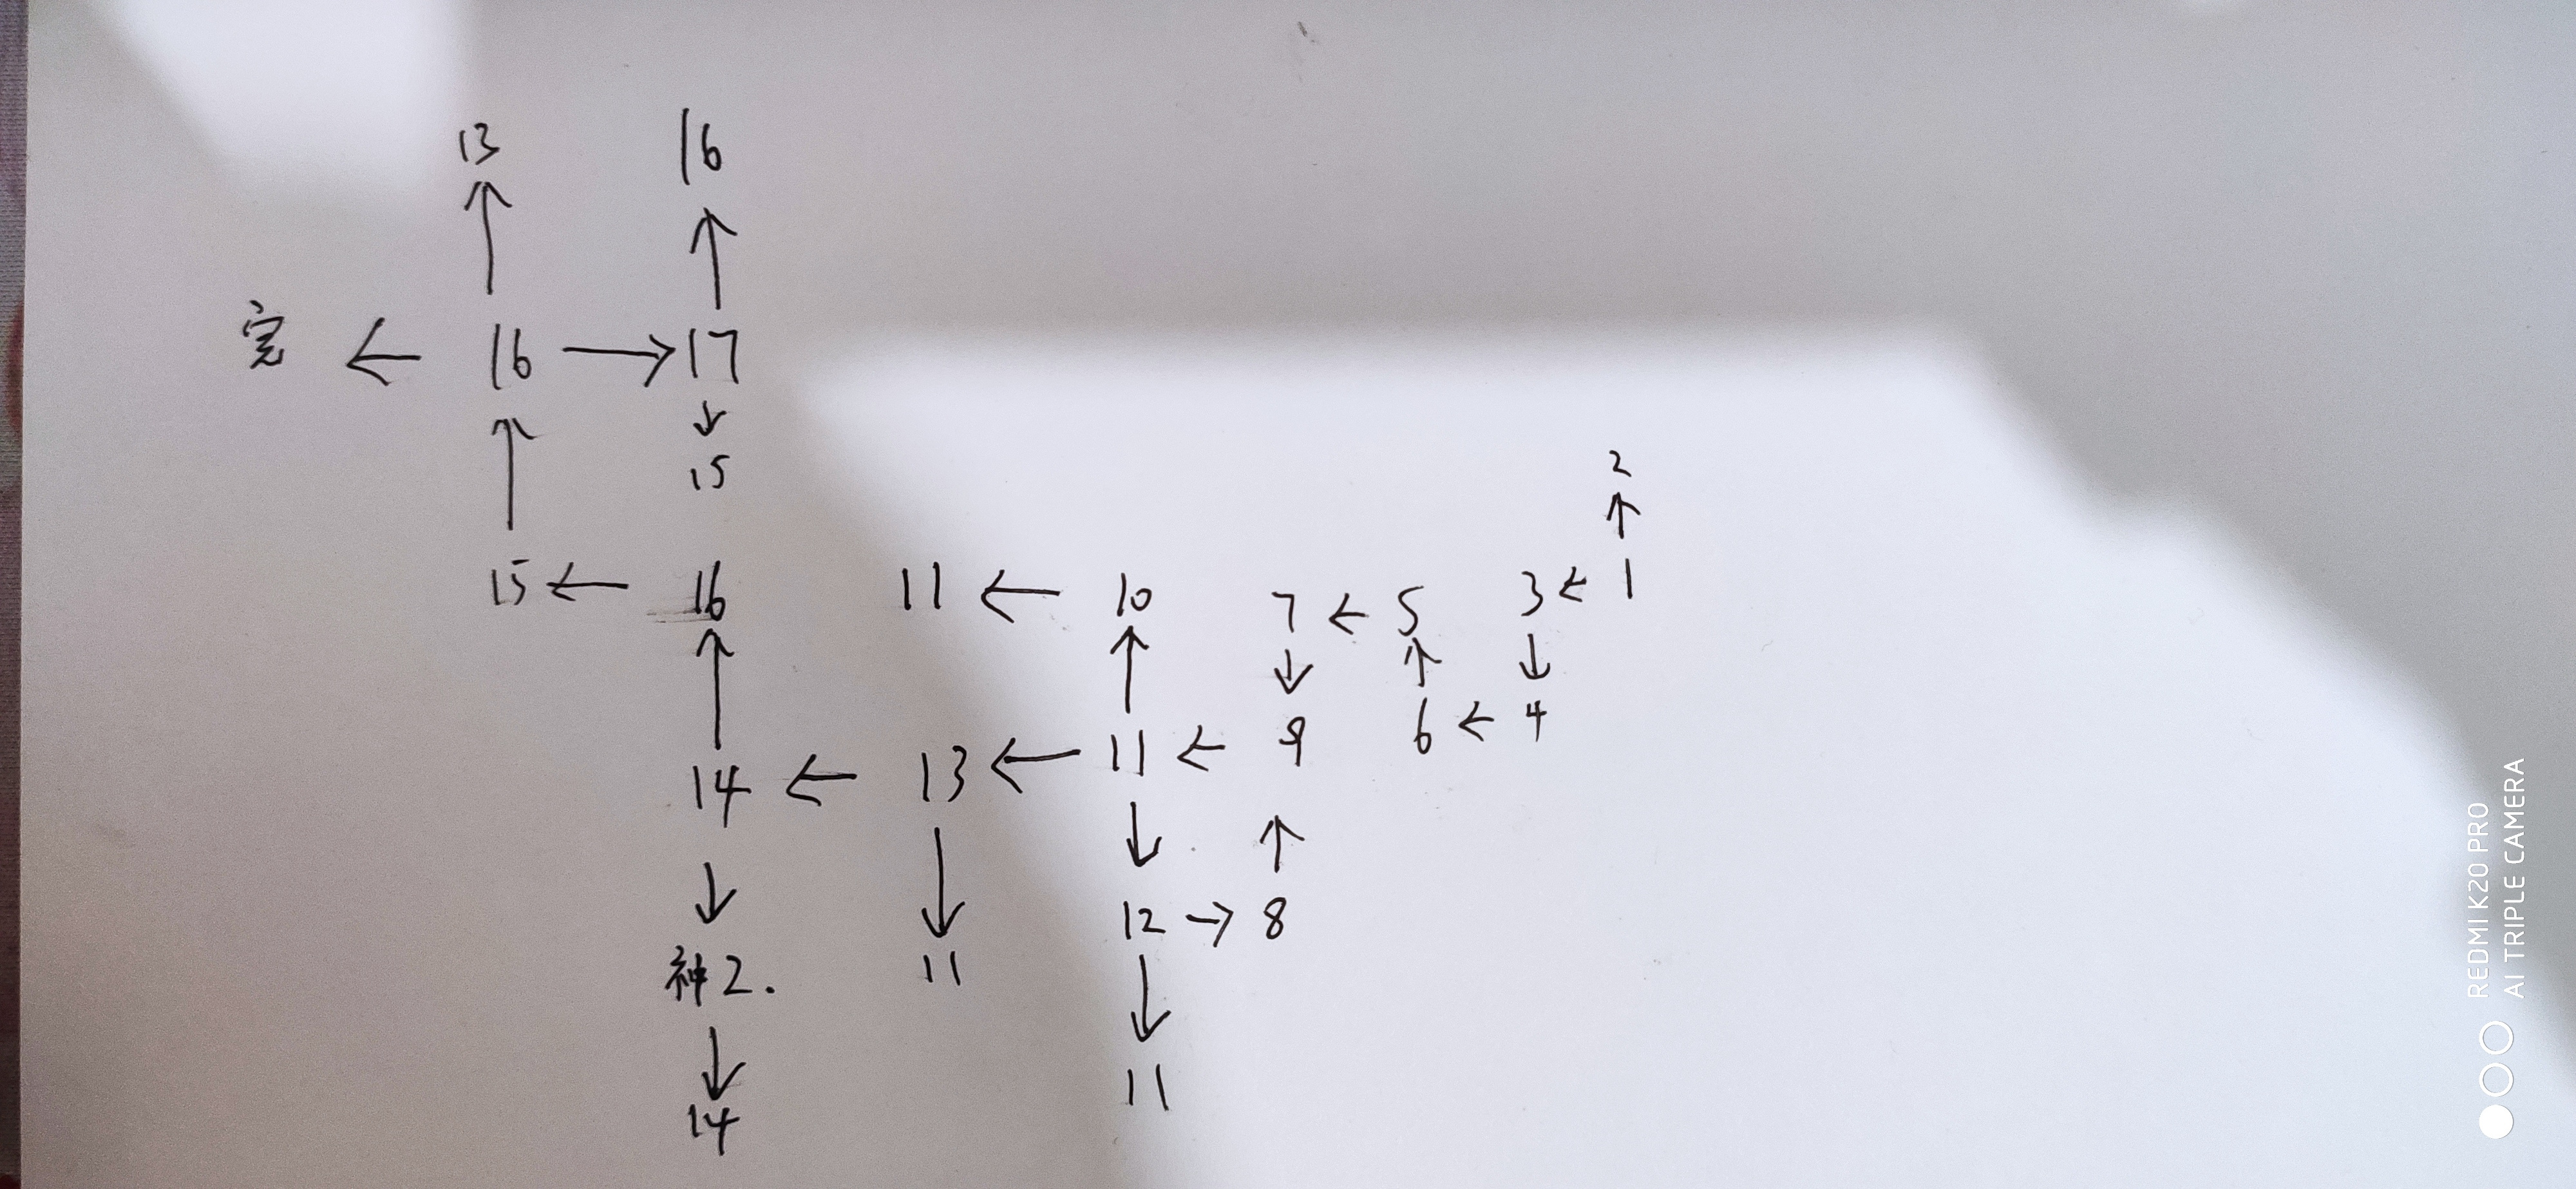 13 16
↑ ↑
完 ← 16 → 17
↑ ↓
15
2
↑
15 ← 16 11 ← 10 7 ← 5 3 ← 1
↑ ↑ ↓ ↑ ↓
14 ← 13 ← 11 ← 9 6 ← 4
↓ ↓ ↓ ↑
12 → 8
神2. 11 ↓
↓ 11
14
REDMI K20 PRO
AI TRIPLE CAMERA